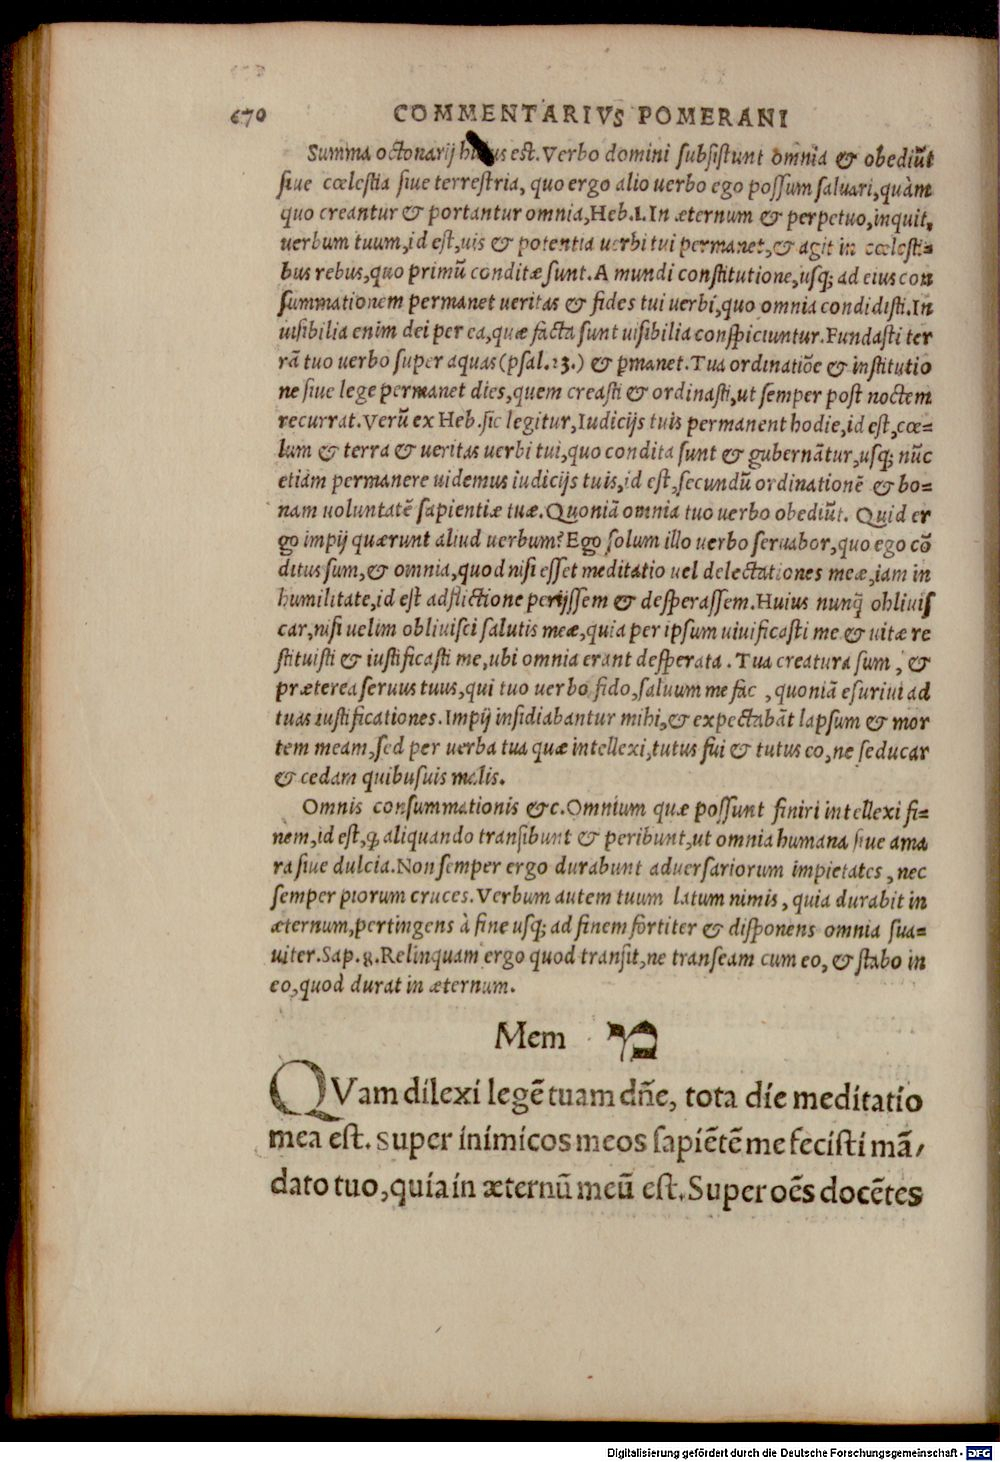 670 COMMENTARIVS POMERANI
Summa octonarij huius est. Verbo domini subsistunt omnia & obediũt
siue cœlestia siue terrestria, quo ergo alio uerbo ego possum saluari, quàm
quo creantur & portantur omnia, Heb. 1. In æternum & perpetuo, inquit,
uerbum tuum, id est, uis & potentia uerbi tui permanet, & agit in cœlesti=
bus rebus, quo primũ conditæ sunt. A mundi constitutione, usq; ad eius con
summationem permanet ueritas & fides tui uerbi, quo omnia condidisti. In
uisibilia enim dei per ea, quæ facta sunt uisibilia conspiciuntur. Fundasti ter
rã tuo uerbo super aquas (psal. 23.) & pmanet. Tua ordinatiõe & institutio
ne siue lege permanet dies, quem creasti & ordinasti, ut semper post noctem
recurrat. Verũ ex Heb. sic legitur, Iudicijs tuis permanent hodie, id est, cœ=
lum & terra & ueritas uerbi tui, quo condita sunt & gubernãtur, usq; nũc
etiam permanere uidemus iudicijs tuis, id est, secundũ ordinationẽ & bo=
nam uoluntatẽ sapientiæ tuæ. Quoniã omnia tuo uerbo obediũt. Quid er
go impij quærunt aliud uerbum? Ego solum illo uerbo seruabor, quo ego cõ
ditus sum, & omnia, quod nisi esset meditatio uel delectationes meæ, iam in
humilitate, id est adflictione perijssem & desperassem. Huius nunq̃ obliuis
car, nisi uelim obliuisci salutis meæ, quia per ipsum uiuificasti me & uitæ re
stituisti & iustificasti me, ubi omnia erant desperata. Tua creatura sum, &
præterea seruus tuus, qui tuo uerbo fido, saluum me fac, quoniã esuriui ad
tuas iustificationes. Impij insidiabantur mihi, & expectabãt lapsum & mor
tem meam, sed per uerba tua quæ intellexi, tutus fui & tutus eo, ne seducar
& cedam quibusuis malis.
Omnis consummationis &c. Omnium quæ possunt finiri intellexi fi=
nem, id est, q̃ aliquando transibunt & peribunt, ut omnia humana siue ama
ra siue dulcia. Non semper ergo durabunt aduersariorum impietates, nec
semper piorum cruces. Verbum autem tuum latum nimis, quia durabit in
æternum, pertingens à fine usq; ad finem fortiter & disponens omnia sua=
uiter. Sap. 8. Relinquam ergo quod transit, ne transeam cum eo, & stabo in
eo, quod durat in æternum.
Mem מ
QVam dilexi legẽ tuam dñe, tota die meditatio
mea est. super inimicos meos sapiẽtẽ me fecisti mã/
dato tuo, quia in æternũ meũ est. Super oẽs docẽtes
Digitalisierung gefördert durch die Deutsche Forschungsgemeinschaft - DFG